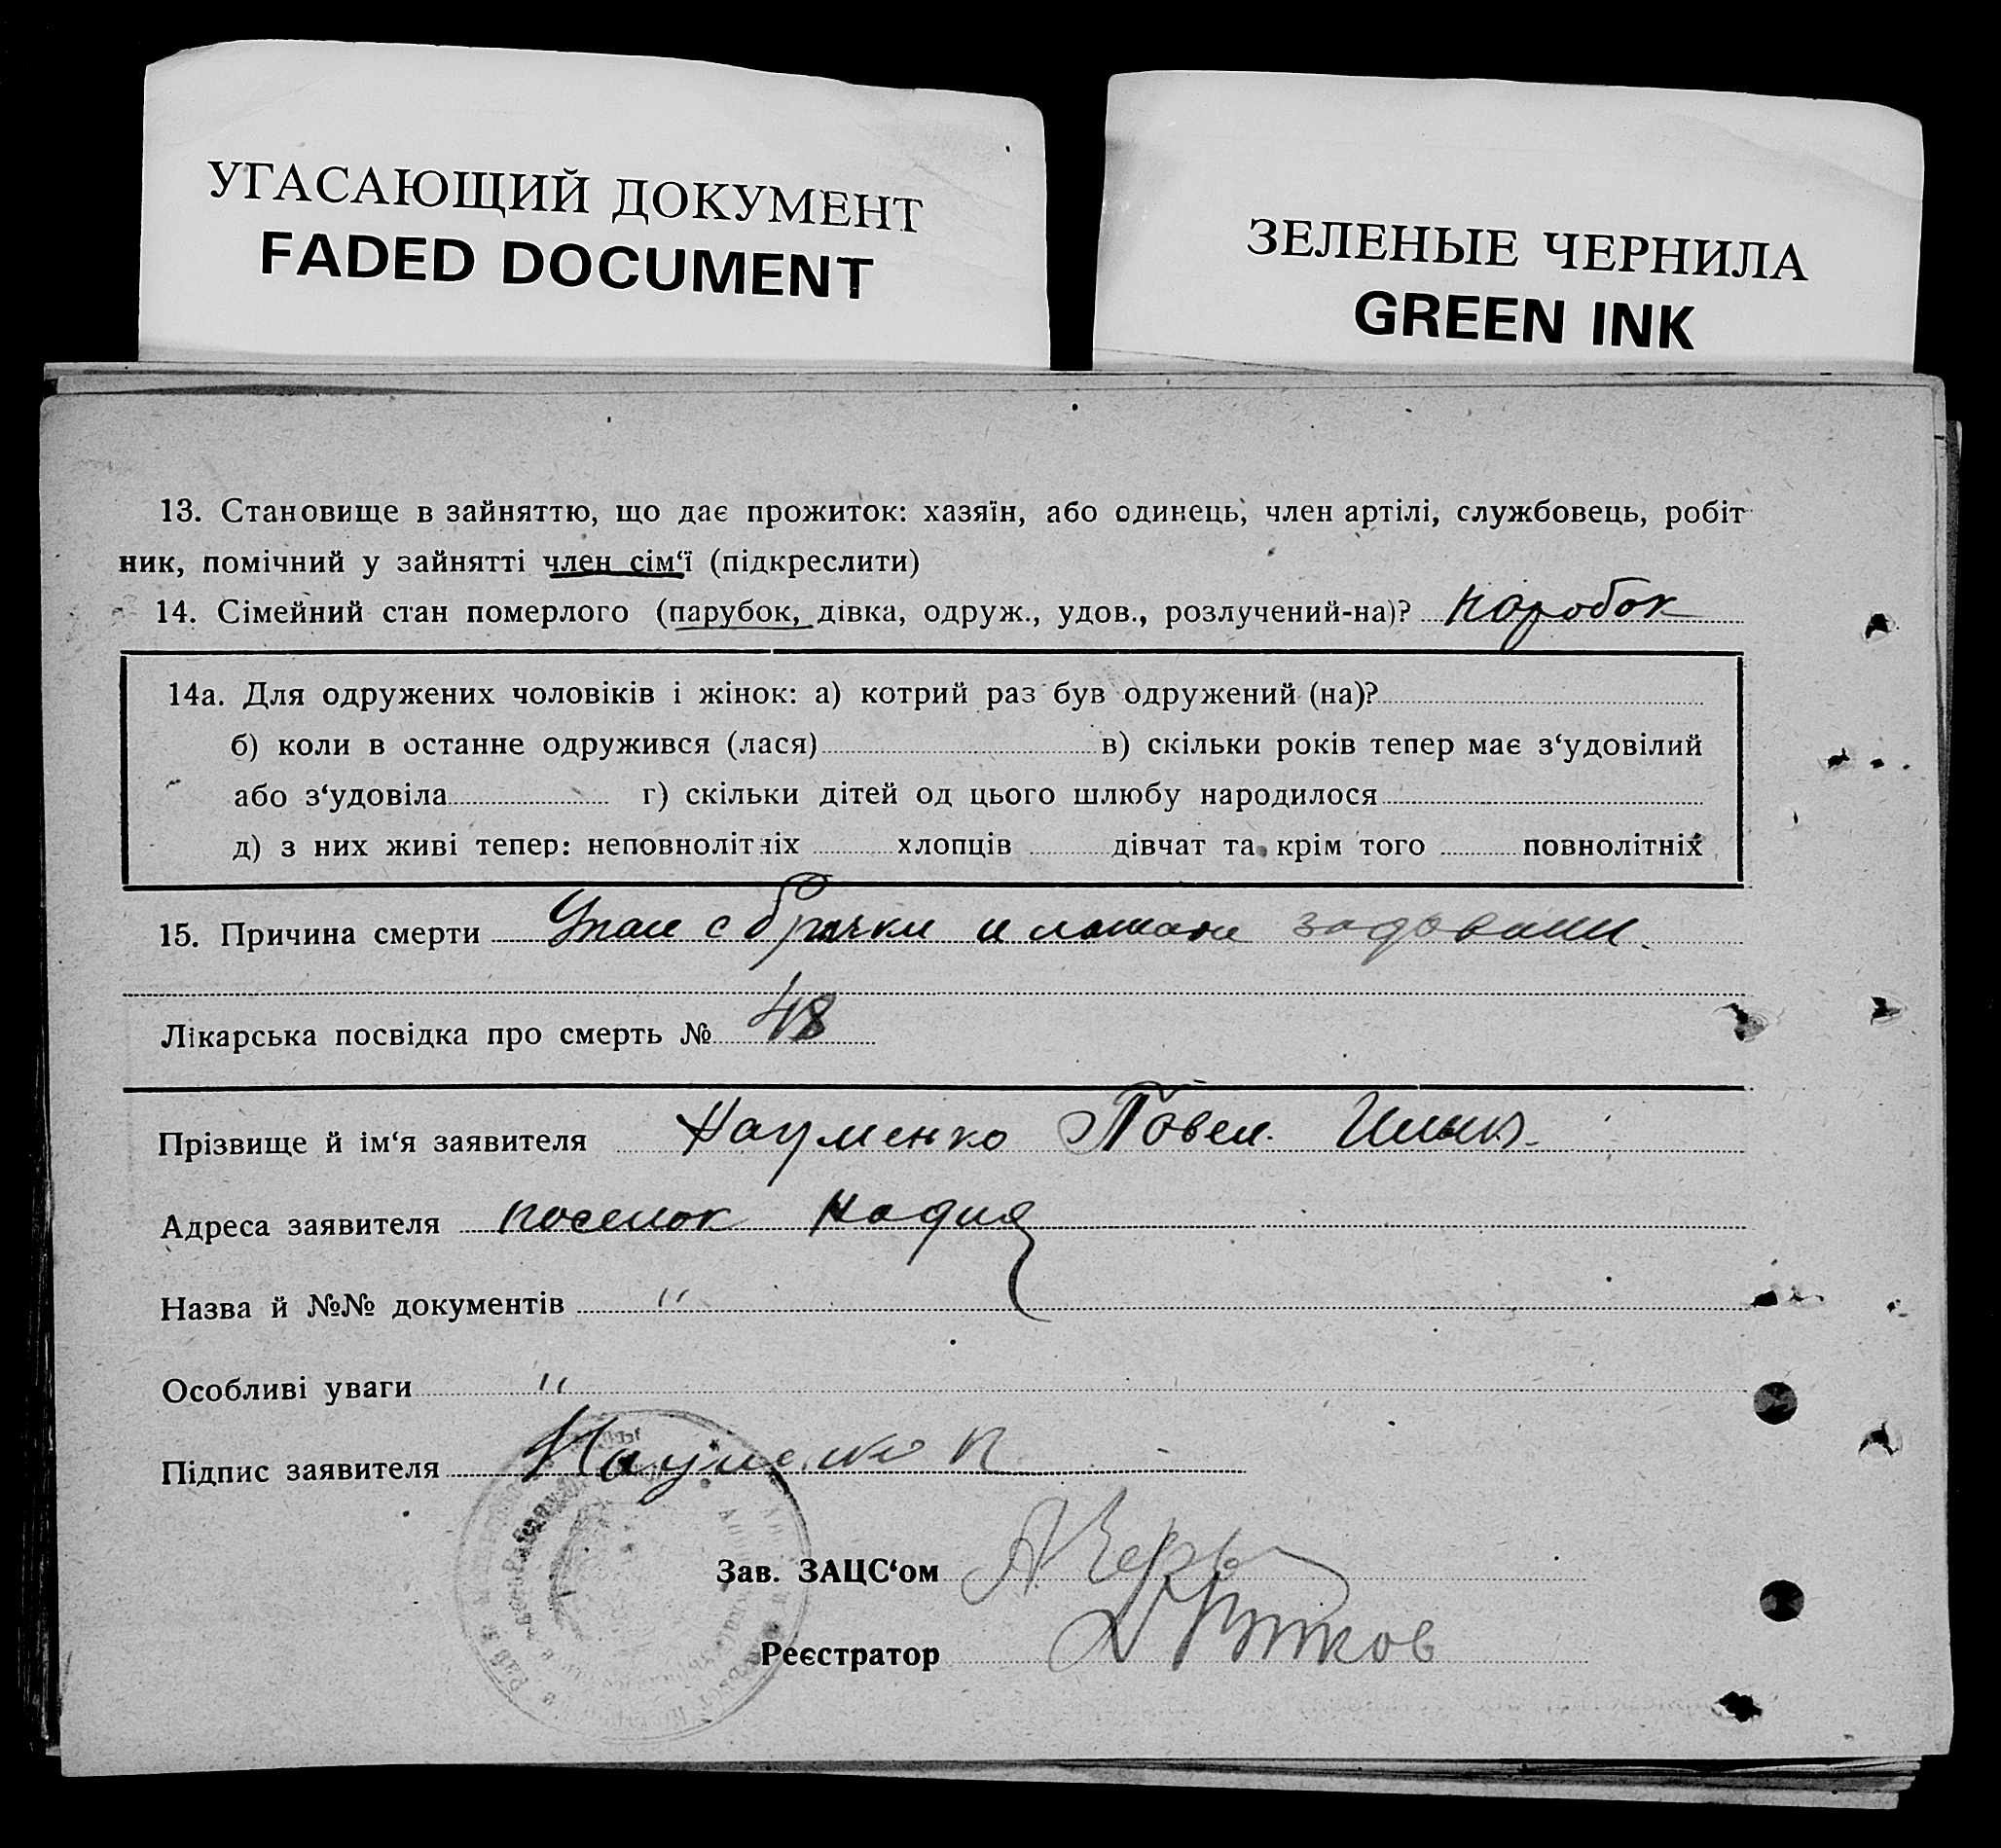 УГАСАЮЩИЙ ДОКУМЕНТ
FADED DOCUMENT
ЗЕЛЕНЫЕ ЧЕРНИЛА
GREEN INK
13. Становище в зайняттю, що дає прожиток: хазяїн, або одинець, член артілі, службовець, робіт-
ник, помічний у зайнятті член сім‘ї (підкреслити)
14. Сімейний стан померлого (парубок, дівка, одруж., удов., розлучений-на)? поробок
14а. Для одружених чоловіків і жінок: а) котрий раз був одружений (на)?
б) коли в останне одружився (лася) в) скільки років тепер має з‘удовілий
або з‘удовіла г) скільки дітей од цього шлюбу народилося
д) з них живі тепер: неповнолітніх хлопців дівчат та крім того повнолітніх
15. Причина смерти Упал с брички и лошади задавили.
Лікарська посвідка про смерть № 48
Прізвище й ім‘я заявителя Науменко Повел.
Адреса заявителя поселок Надия
Назва й №№ документів "
Особливі уваги "
Підпис заявителя Науменко П
Зав. ЗАЦС‘ом
Реєстратор